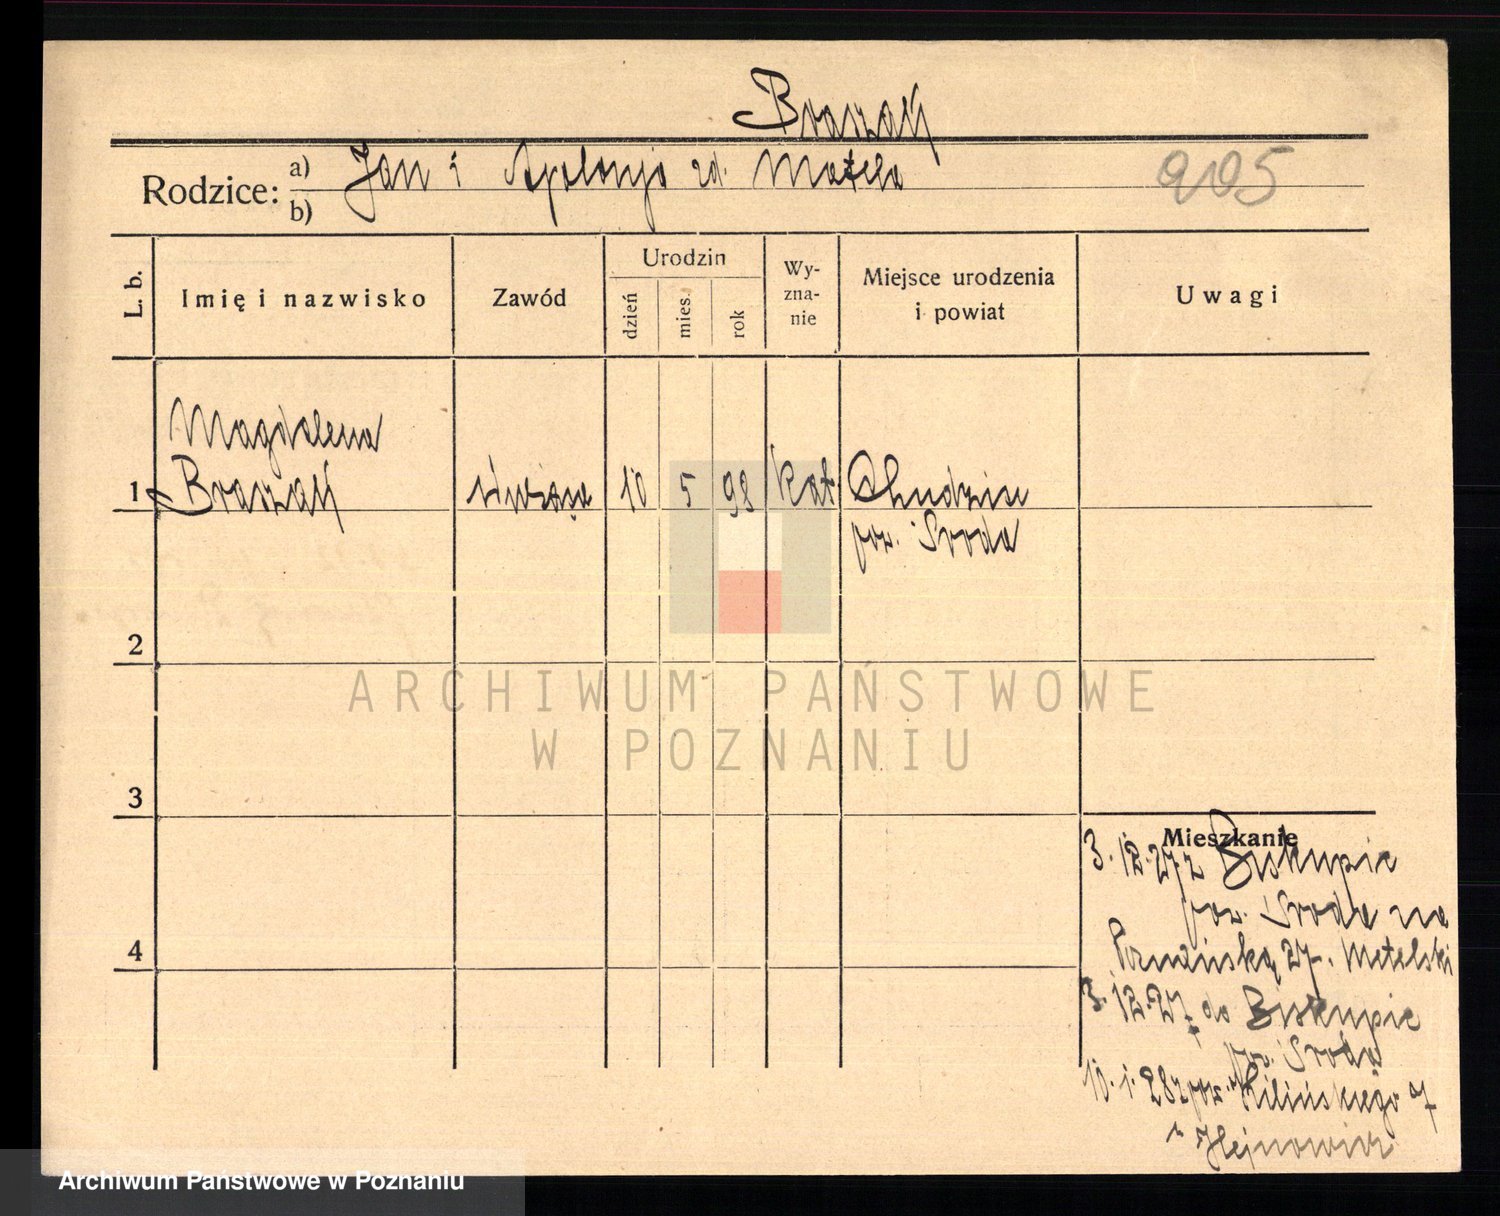 Braszak
Rodzice: a) Jan i Apolonja zd. Matela
b)
905
L. b.
Imię i nazwisko
Zawód
Urodzin
dzień
mies.
rok
Wy-
zna-
nie
Miejsce urodzenia
i powiat
Uwagi
Magdalena
1 Braszak służąca 10 5 98 kat Chudzice
pow. Środa
2
3
4
Mieszkanie
3. 12. 27 z Biskupic
pow. Środa na
Poznańską 27. Matelski
3. 12. 27 do Biskupic
pow. Środa
10. 1. 28 Kilińskiego
ARCHIWUM PAŃSTWOWE
W POZNANIU
Archiwum Państwowe w Poznaniu